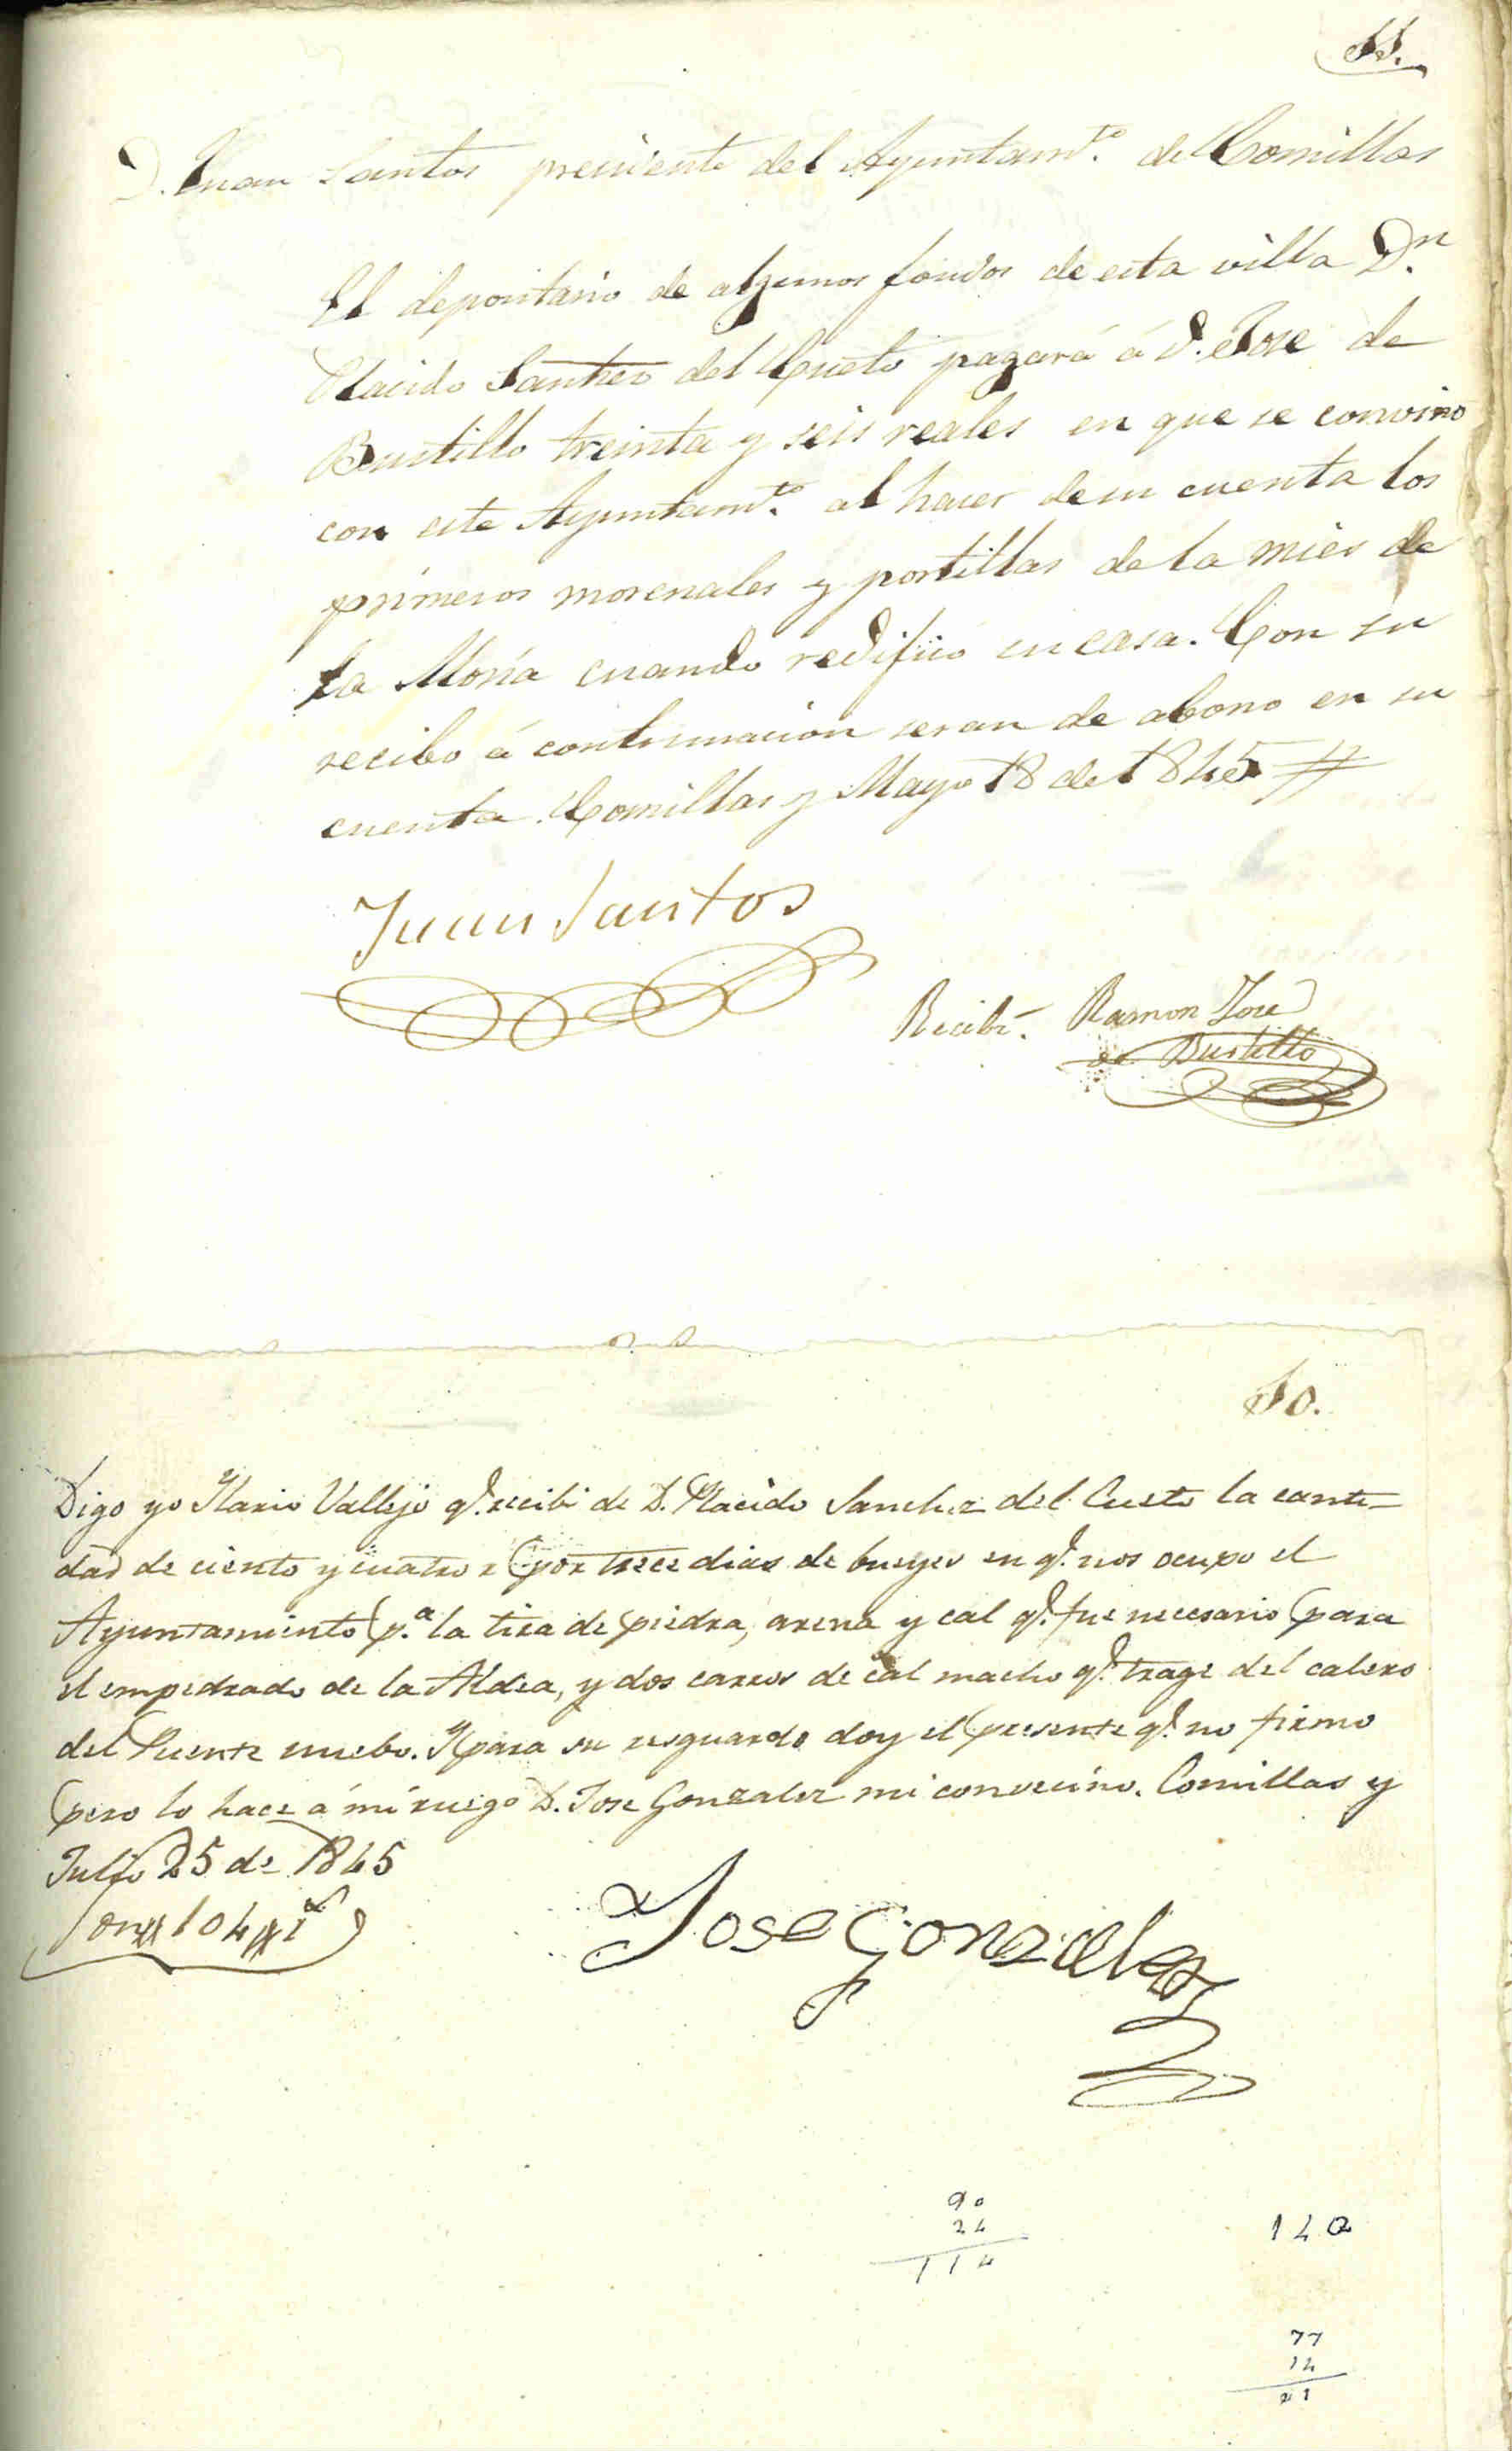 11.
D. Juan Santos presidente del Ayuntamto. de Comillas
El depositario de algunos fondos de esta villa Dn.
Placido Sanchez del Cueto pagará á D. Jose de
Bustillo treinta y seis reales en que se convino
con este Ayuntamto. al hacer de su cuenta los
primeros morenales y portillas de la mies de
la Moria cuando redifico su casa. Con su
recibo á continuacion seran de abono en su
cuenta. Comillas y Mayo 18 de 1845 #
Juan Santos
Recibí. Ramon Jose
de Bustillo
10.
Digo yo Ylario Vallejo q.e recibi de D. Placido Sanchez del Cueto la canti-
dad de ciento y cuatro r por trece dias de bueyes en q.e nos ocupo el
Ayuntamiento p.a la tira de piedra, arena y cal q.e fue necesario para
el empedrado de la Aldea, y dos carros de cal macho q.e trage del calero
del Puente nuebo. Y para su resguardo doy el presente q.e no firmo
pero lo hace á mi ruego D. Jose Gonzalez mi convecino. Comillas y
Julio 25 de 1845
Son # 104 # r
Jose Gonzalez
90
24
114
140
77
14
91